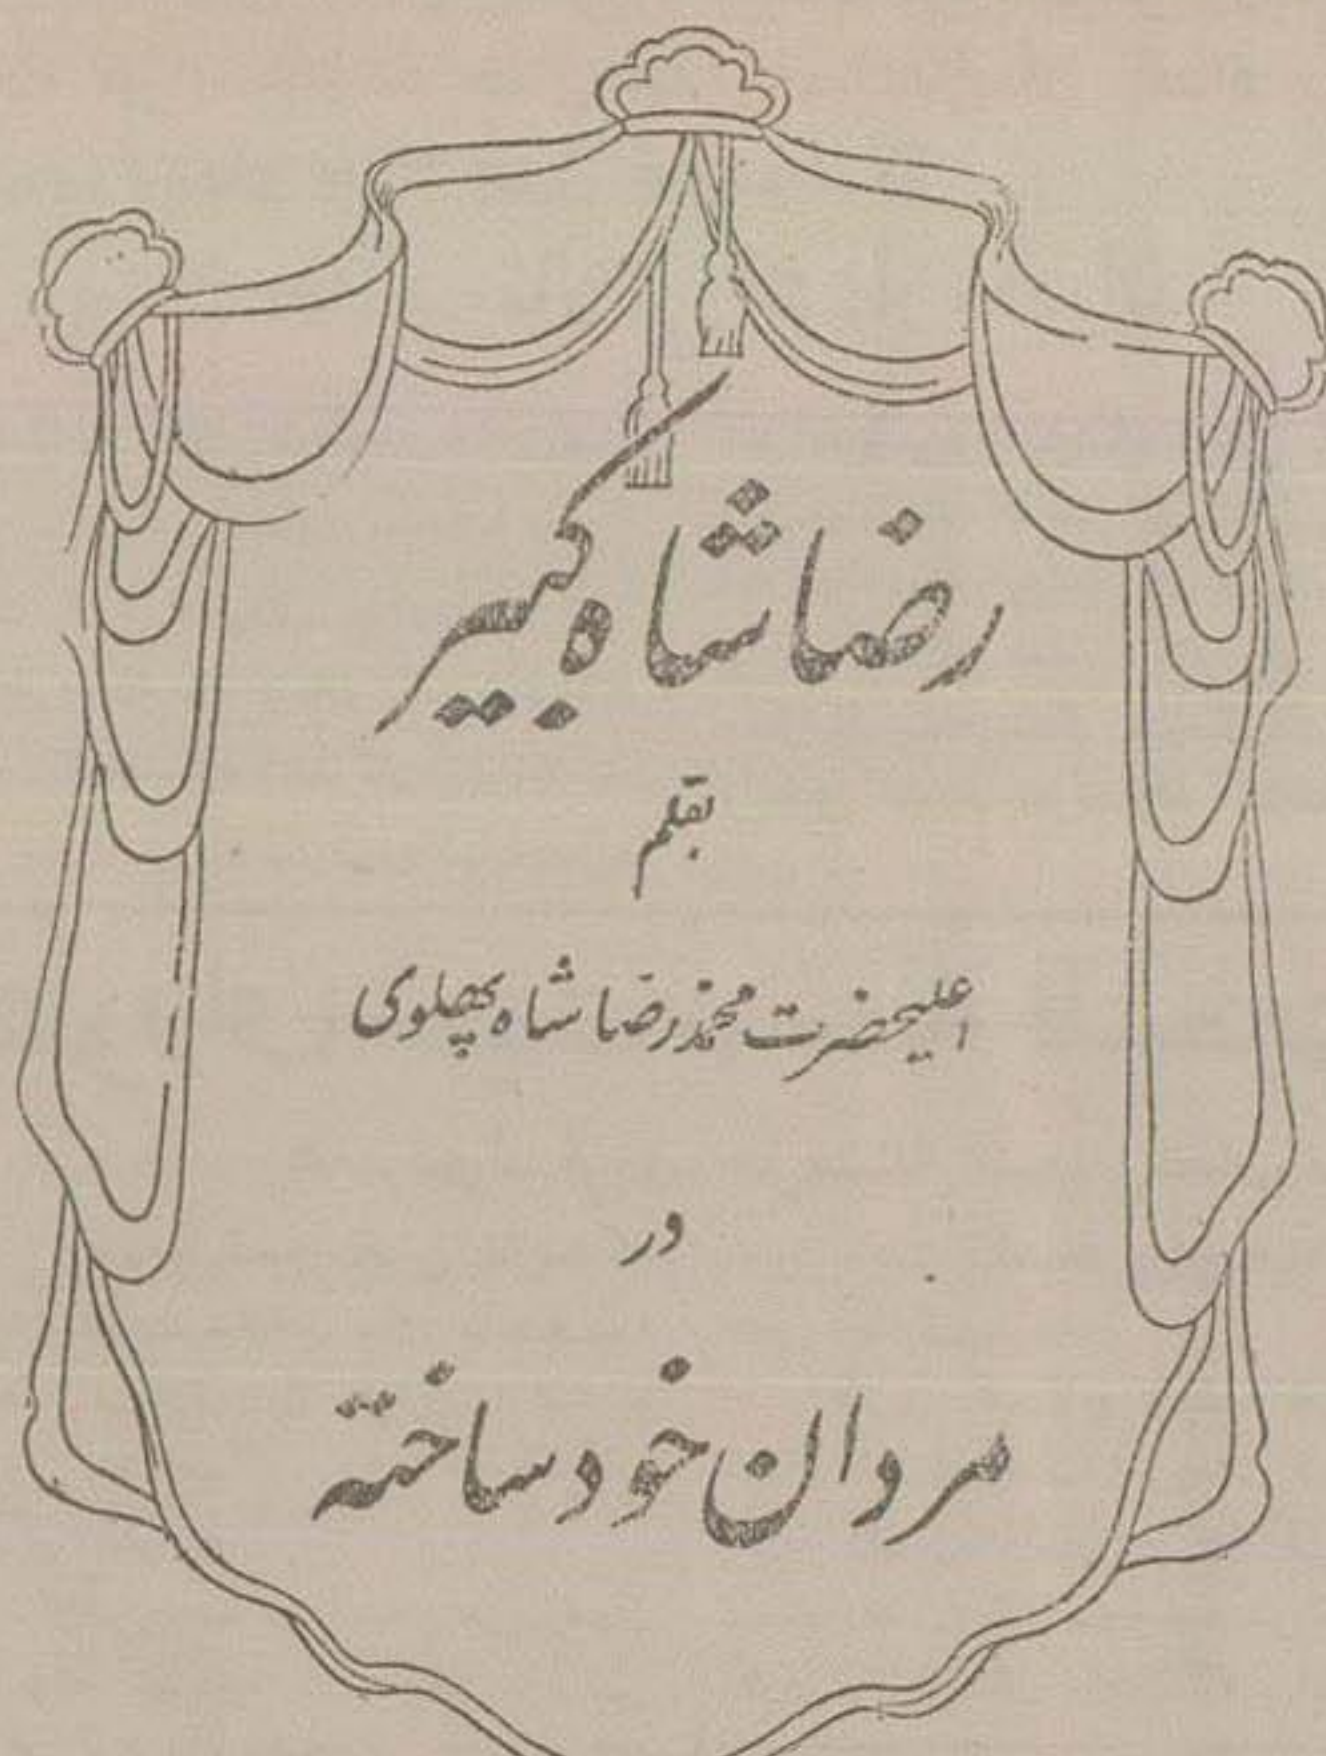 رضا شاه کبیر
بقلم
اعلیحضرت محمد رضا شاه پهلوی
در
مردان خود ساخته